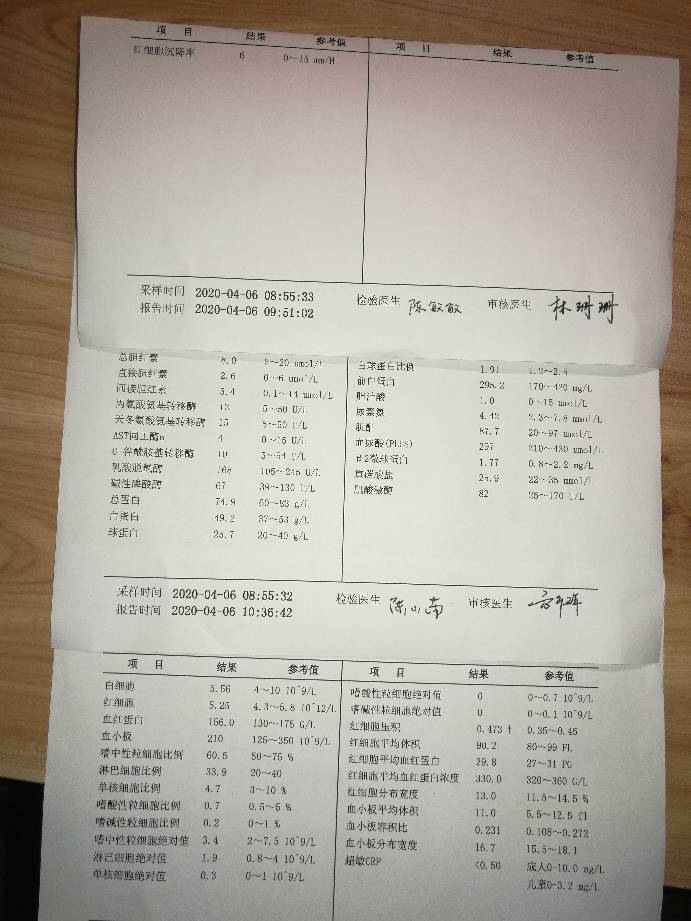 项 目 结果 参考值 项 目 结果 参考值
红细胞沉降率 6 0~15 mm/H
采样时间 2020-04-06 08:55:33 检验医生 陈敏敏 审核医生 林珊珊
报告时间 2020-04-06 09:51:02
总胆红素 8.0 2~20 umol/L 白球蛋白比值 1.91 1.2~2.5
直接胆红素 2.6 0~6 umol/L 前白蛋白 295.2 170~420 mg/L
间接胆红素 5.4 0.1~14 umol/L 胆汁酸 1.0 0~15 umol/L
丙氨酸氨基转移酶 13 5~50 U/L 尿素氮 4.42 2.3~7.8 mmol/L
天冬氨酸氨基转移酶 15 U/L 肌酐 87.7 20~97 umol/L
AST同工酶m 4 0~15 U/L 血尿酸(PLUS) 297 210~430 umol/L
G-谷酰胺基转移酶 10 U/L β2微球蛋白 1.77 0.8~2.2 mg/L
乳酸脱氢酶 168 105~245 U/L 重碳酸盐 25.9 22~35 mmol/L
碱性磷酸酶 67 39~130 U/L 肌酸激酶 82 25~170 U/L
总蛋白 74.9 60~83 g/L
白蛋白 49.2 37~53 g/L
球蛋白 25.7 20~40 g/L
采样时间 2020-04-06 08:55:32 检验医生 审核医生
报告时间 2020-04-06 10:36:42
项 目 结果 参考值 项 目 结果 参考值
白细胞 5.56 4~10 10^9/L 嗜酸性粒细胞绝对值 0 0~0.7 10^9/L
红细胞 5.25 4.3~5.8 10^12/L 嗜碱性粒细胞绝对值 0 0~0.1 10^9/L
血红蛋白 156.0 130~175 G/L 红细胞压积 0.473 ↑ 0.35~0.45
血小板 210 125~350 10^9/L 红细胞平均体积 90.2 80~99 FL
嗜中性粒细胞比例 60.5 50~75 % 红细胞平均血红蛋白 29.8 27~31 PG
淋巴细胞比例 33.9 20~40 红细胞平均血红蛋白浓度 330.0 320~360 G/L
单核细胞比例 4.7 3~10 % 红细胞分布宽度 13.0 11.5~14.5 %
嗜酸性粒细胞比例 0.7 0.5~5 % 血小板平均体积 11.0 5.5~12.5 fl
嗜碱性粒细胞比例 0.2 0~1 % 血小板容积比 0.231 0.108~0.272
嗜中性粒细胞绝对值 3.4 2~7.5 10^9/L 血小板分布宽度 16.7 15.5~18.1
淋巴细胞绝对值 1.9 0.8~4 10^9/L 超敏CRP <0.50 成人0-10.0 mg/L
单核细胞绝对值 0.3 0~1 10^9/L 儿童0-3.2 mg/L